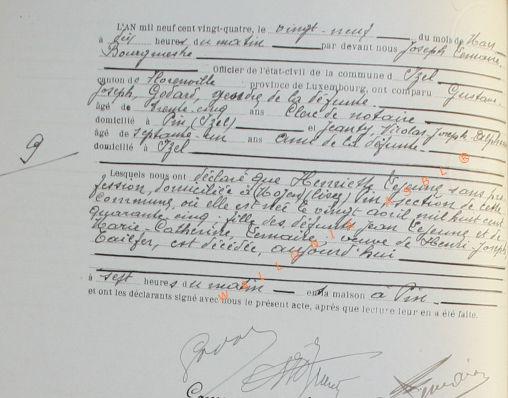 L'AN mil neuf cent vingt-quatre, le vingt-neuf du mois de Mars
à dix heures du matin par devant nous Joseph Lemaire,
Bourgmestre
Officier de l'état-civil de la commune d'Izel
canton de Florenville province de Luxembourg, ont comparu Gustave
Joseph, Godard, gendre de la défunte
âgé de trente-cinq ans Clerc de notaire
domicilié à Pin (Izel) et Jeanty, Nicolas-Joseph-Delphin
âgé de septante-un ans ami de la défunte
domicilié à Izel
9
Lesquels nous ont déclaré que Henriette Lejeune, sans pro
fession, domiciliée à Pin section de cette
Commune, où elle est née le vingt août mil huit cent
quarante cinq; fille des défunts Jean Lejeune et de
Marie-Catherine, Lemaire, veuve de Henri-Joseph,
est décédée, aujourd'hui
à sept heures du matin en la maison à Pin
et ont les déclarants signé avec nous le présent acte, après que lecture leur en a été faite.